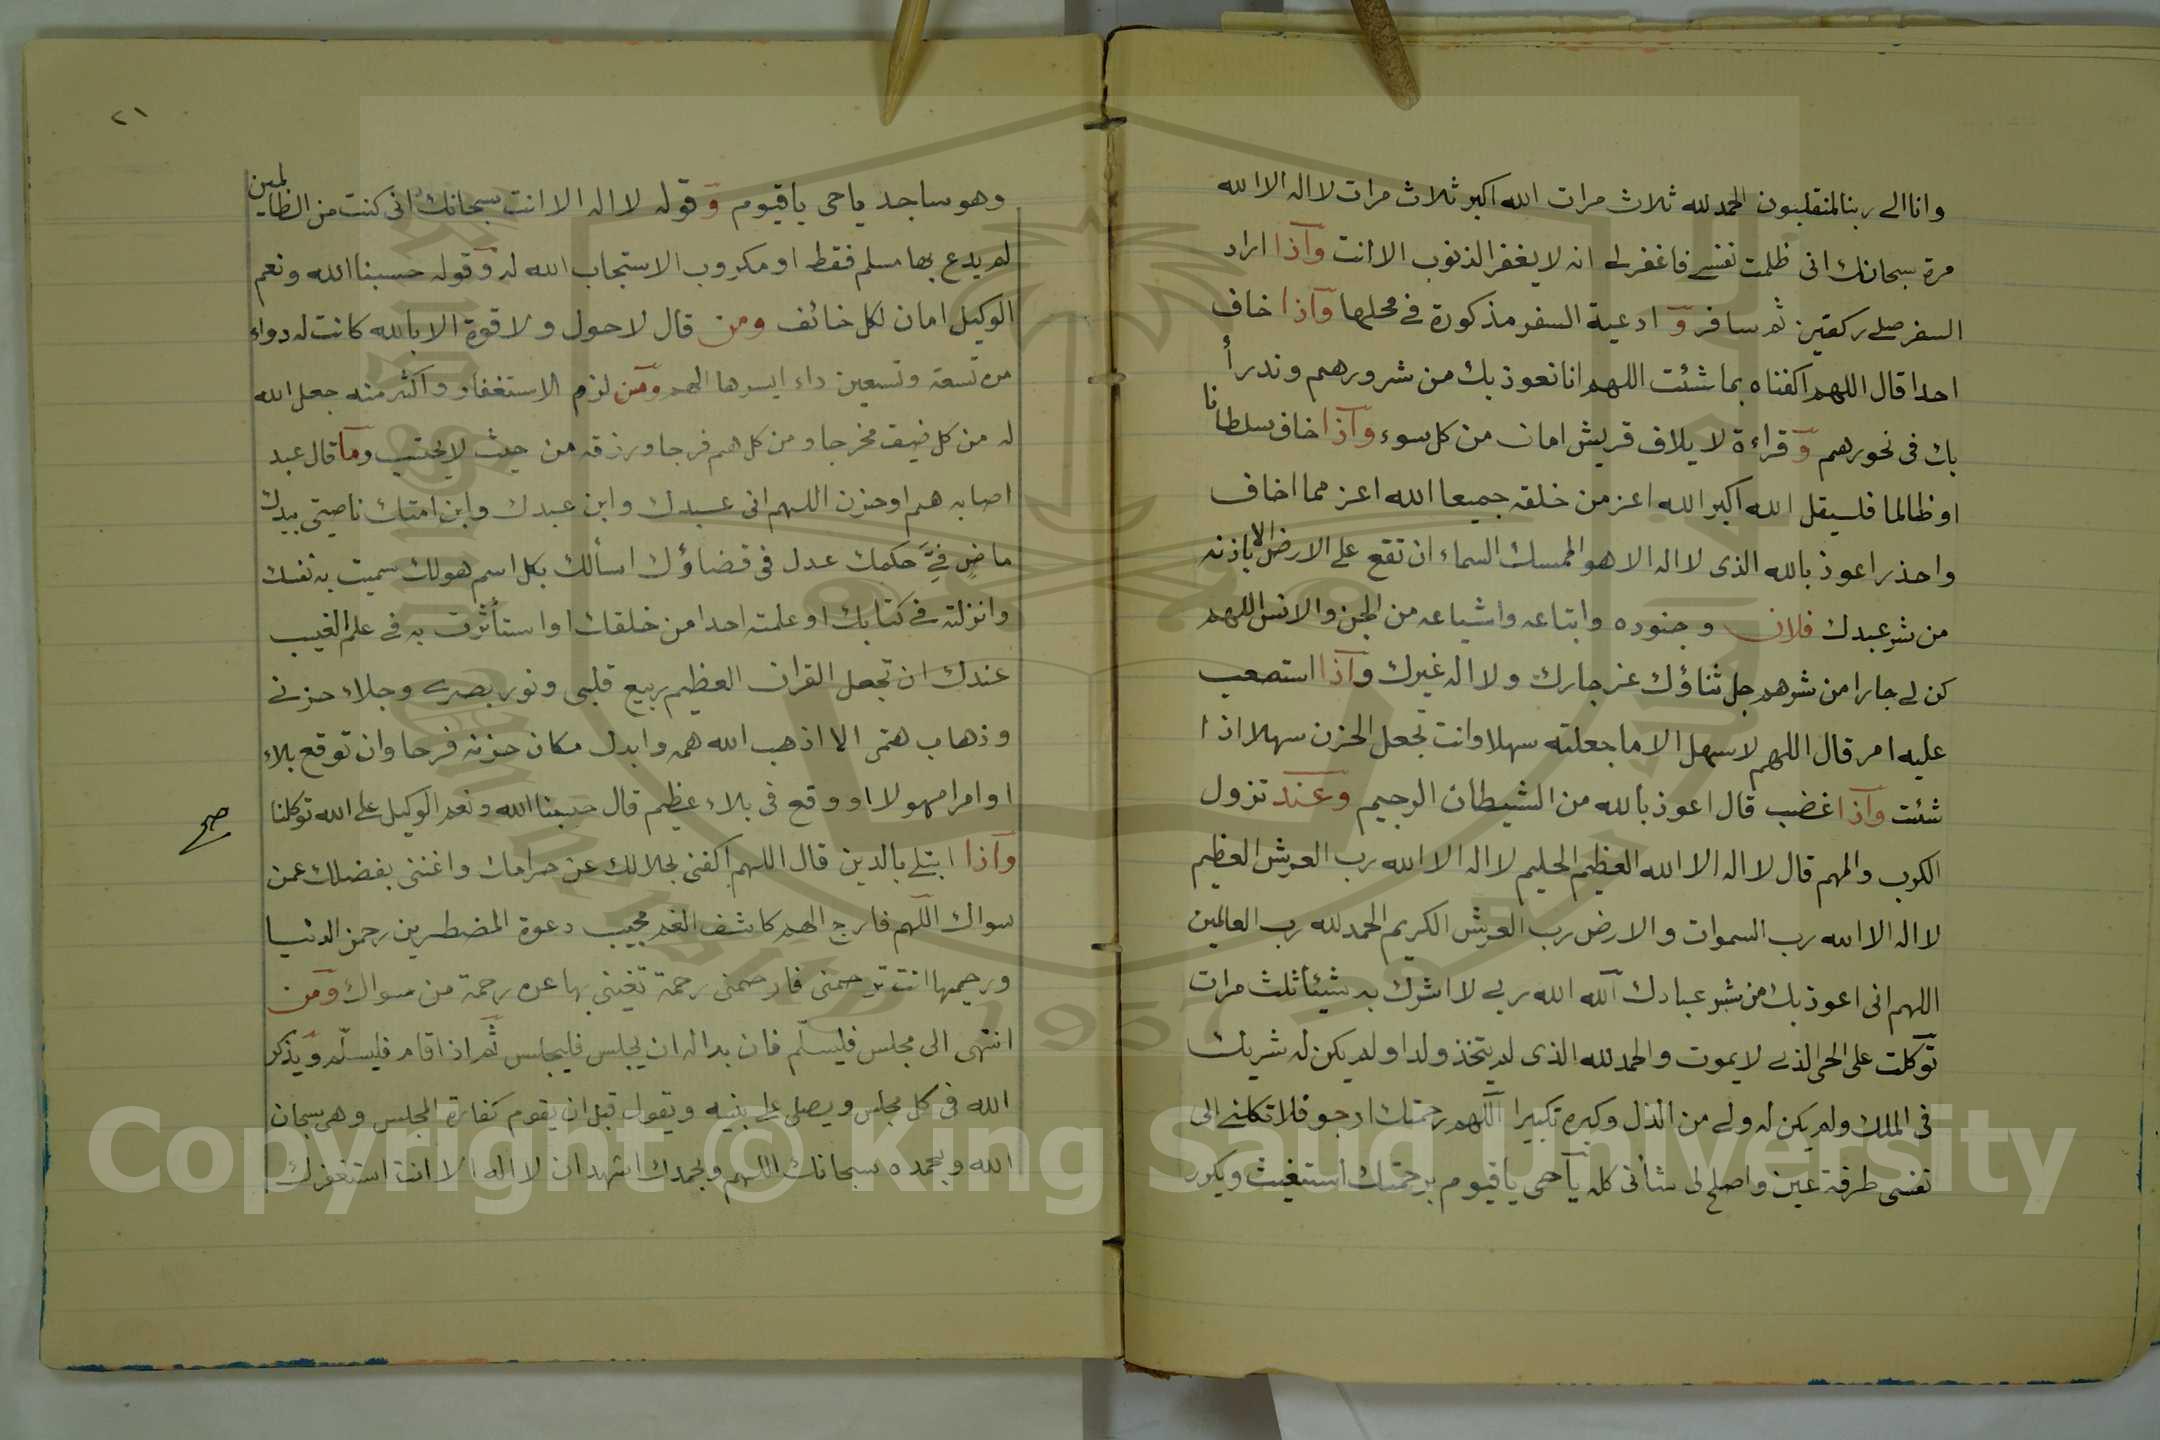 وانا الى ربنا لمنقلبون الحمد لله ثلاث مرات الله اكبر ثلاث مرات لا اله الا الله
مرة سبحانك انى ظلمت نفسى فاغفر لى انه لا يغفر الذنوب الا انت واذا اراد
السفر صلى ركعتين ثم سافر و ادعية السفر مذكورة فى محلها واذا خاف
احدا قال اللهم اكفناه بما شئت اللهم انا نعوذ بك من شرورهم وندرأ
بك فى نحورهم و قراءة لايلاف قريش امان من كل سوء واذا خاف سلطانا
او ظالما فليقل الله اكبر الله اعز من خلقه جميعا الله اعز مما اخاف
واحذر اعوذ بالله الذى لا اله الا هو الممسك السماء ان تقع على الارض الا باذنه
من شر عبدك فلان وجنوده واتباعه واشياعه من الجن والانس اللهم
كن لى جارا من شرهم جل ثناؤك عز جارك ولا اله غيرك واذا استصعب
عليه امر قال اللهم لا سهل الا ما جعلته سهلا وانت تجعل الحزن سهلا اذا
شئت واذا غضب قال اعوذ بالله من الشيطان الرجيم وعند نزول
الكرب والمهم قال لا اله الا الله العظيم الحليم لا اله الا الله رب العرش العظيم
لا اله الا الله رب السموات والارض رب العرش الكريم الحمد لله رب العالمين
اللهم انى اعوذ بك من شر عبادك الله الله ربى لا اشرك به شيئا ثلث مرات
توكلت على الحى الذى لا يموت والحمد لله الذى لم يتخذ ولدا ولم يكن له شريك
فى الملك ولم يكن له ولى من الذل وكبره تكبيرا اللهم رحمتك ارجو فلا تكلنى الى
نفسى طرفة عين واصلح لى شأنى كله يا حى يا قيوم برحمتك استغيث ويكرر
٢١
وهو ساجد يا حى يا قيوم و قوله لا اله الا انت سبحانك انى كنت من الظالمين
لم يدع بها مسلم فقط او مكروب الا استجاب الله له وقوله حسبنا الله ونعم
الوكيل امان لكل خائف ومن قال لا حول ولا قوة الا بالله كانت له دواء
من تسعة وتسعين داء ايسرها الهم ومن لزم الاستغفار واكثر منه جعل الله
له من كل ضيق مخرجا ومن كل هم فرجا ورزقه من حيث لا يحتسب وما قال عبد
اصابه هم او حزن اللهم انى عبدك وابن عبدك وابن امتك ناصيتى بيدك
ماضٍ فِيَّ حكمك عدل فى قضاؤك اسألك بكل اسم هو لك سميت به نفسك
وانزلته فى كتابك او علمته احدا من خلقك او استأثرت به فى علم الغيب
عندك ان تجعل القران العظيم ربيع قلبى ونور بصرى وجلاء حزنى
وذهاب همى الا اذهب الله همه وابدل مكان حزنه فرحا وان توقع بلاء
او امرا مهولا او وقع فى بلاء عظيم قال حسبنا الله ونعم الوكيل على الله توكلنا
صح
واذا ابتلى بالدين قال اللهم اكفنى بحلالك عن حرامك واغننى بفضلك عمن
سواك اللهم فارج الهم كاشف الغم مجيب دعوة المضطرين رحمن الدنيا
ورحيمها انت ترحمنى فارحمنى رحمة تغنينى بها عن رحمة من سواك ومن
انتهى الى مجلس فليسلّم فان بدا له ان يجلس فليجلس ثم اذا قام فليسلّم ويذكر
الله فى كل مجلس ويصلى على نبيه ويقول قبل ان يقوم كفارة المجلس وهى سبحان
الله وبحمده سبحانك اللهم وبحمدك اشهد ان لا اله الا انت استغفرك
Copyright © King Saud University
1957